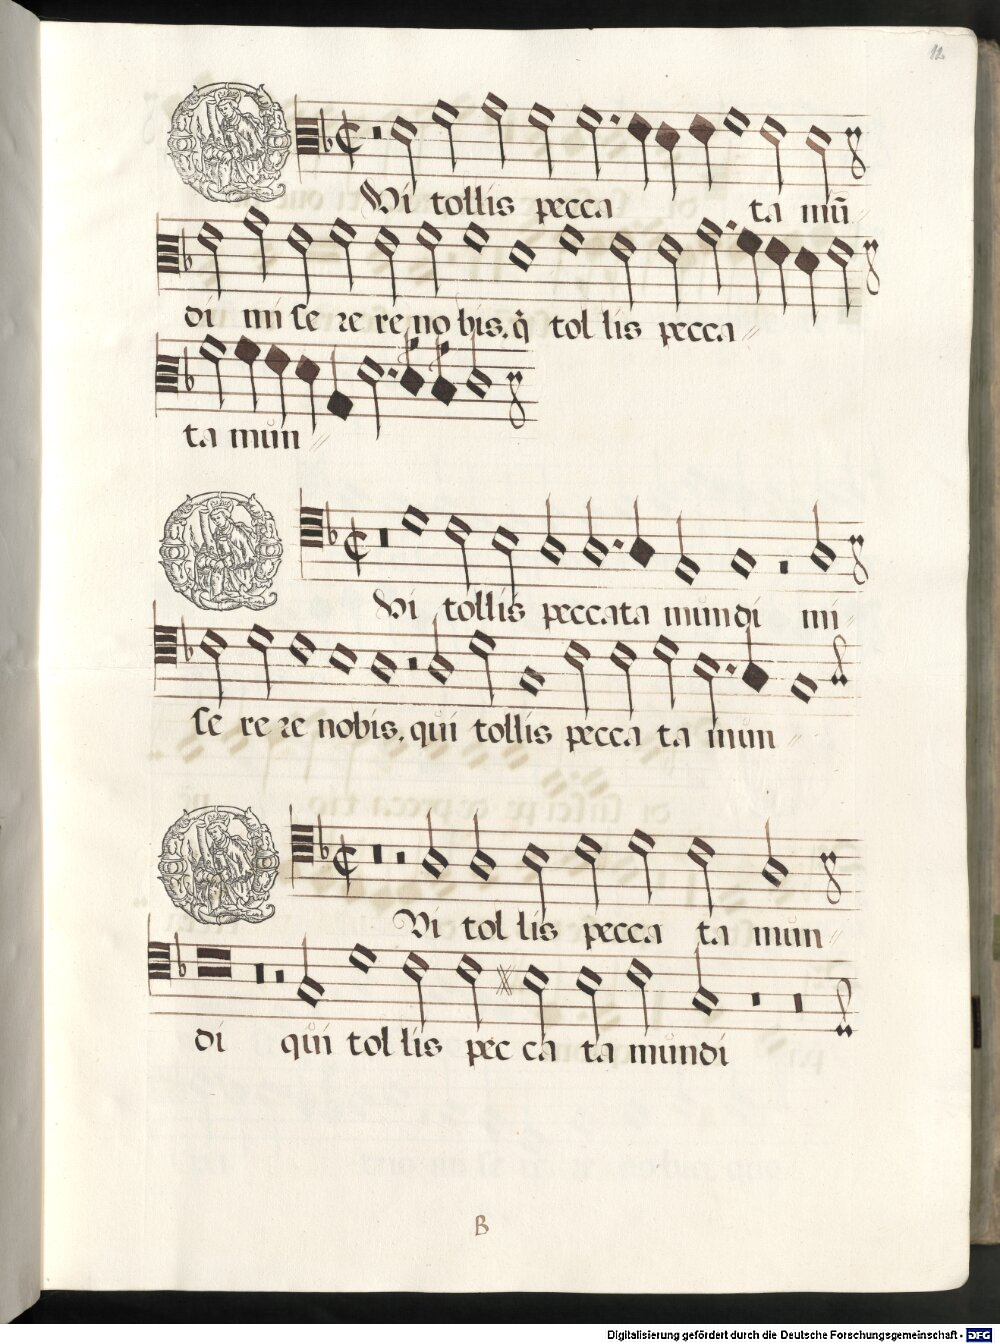 12
Qui tollis pecca ta mũ
di mi se re re no bis. q̊ tol lis pecca
ta mun
Qui tollis peccata mundi mi
se re re nobis. qui tollis pecca ta mun
Qui tol lis pecca ta mun
di qui tol lis pec ca ta mundi
B
Digitalisierung gefördert durch die Deutsche Forschungsgemeinschaft - DFG